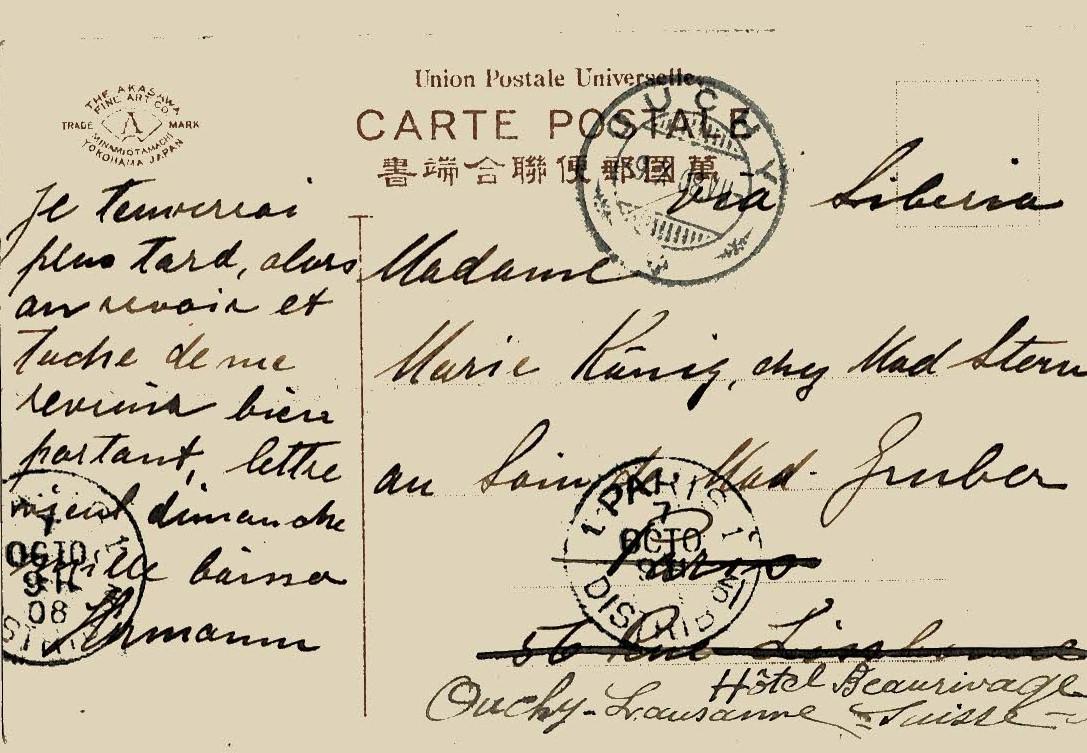 THE AKASAWA
FINE ART CO
TRADE A MARK
MINAMIOTAMACHI
YOKOHAMA JAPAN
Union Postale Universelle.
CARTE POSTALE
書端合聯便郵國萬
OUCHY
Je tenverrai
plus tard, alors
au revoir et
tache de me
revenir bien
portant, lettre
dimanche
mille baiser
Hermann
via Siberia
Madame
Marie König, chez Mad Stern
au Soins de Mad. Gruber
Paris
56 Rue Lisbonne
Hôtel Beaurivage
Ouchy-Lausanne-Suisse-
PARIS
7
OCTO
DISTRIBUTION
OCTO
08